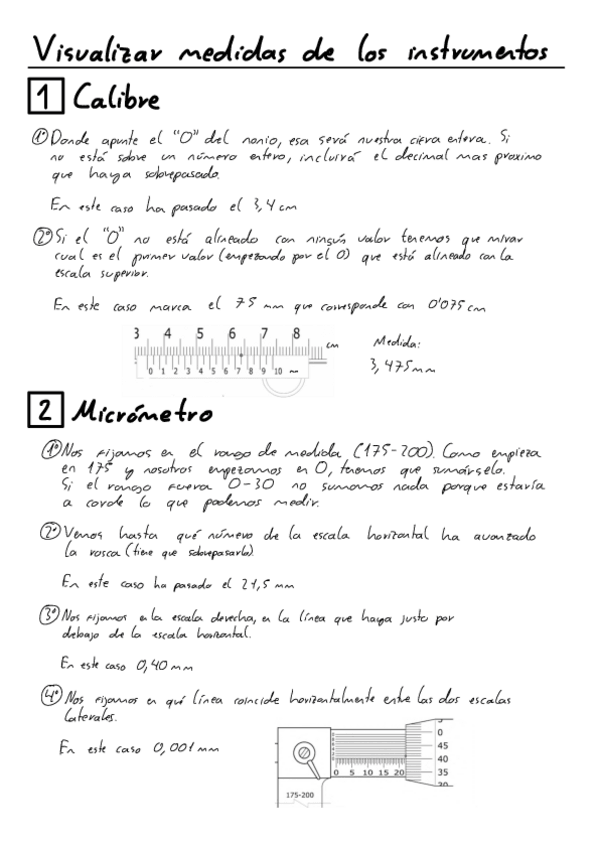 Visualizar medidas de los instrumentos
1 Calibre
1º Donde apunte el "0" del nonio, esa será nuestra cifra entera. Si
no está sobre un número entero, incluirá el decimal mas proximo
que haya sobrepasado.
En este caso ha pasado el 3,4 cm
2º Si el "0" no está alineado con ningún valor tenemos que mirar
cual es el primer valor (empezando por el 0) que está alineado con la
escala superior.
En este caso marca el 75 mm que corresponde con 0'075 cm
3 4 5 6 7 8
cm
0 1 2 3 4 5 6 7 8 9 10 mm
Medida:
3,475 mm
2 Micrómetro
1º Nos fijamos en el rango de medida (175-200). Como empieza
en 175 y nosotros empezamos en 0, tenemos que sumárselo.
Si el rango fuera 0-30 no sumamos nada porque estaría
a corde lo que podemos medir.
2º Vemos hasta qué número de la escala horizontal ha avanzado
la rosca (tiene que sobrepasarlo).
En este caso ha pasado el 21,5 mm
3º Nos fijamos en la escala derecha, en la línea que haya justo por
debajo de la escala horizontal.
En este caso 0,40 mm
4º Nos fijamos en qué línea coincide horizontalmente entre las dos escalas
laterales.
En este caso 0,001 mm
0
45
40
35
30
0 5 10 15 20
175-200